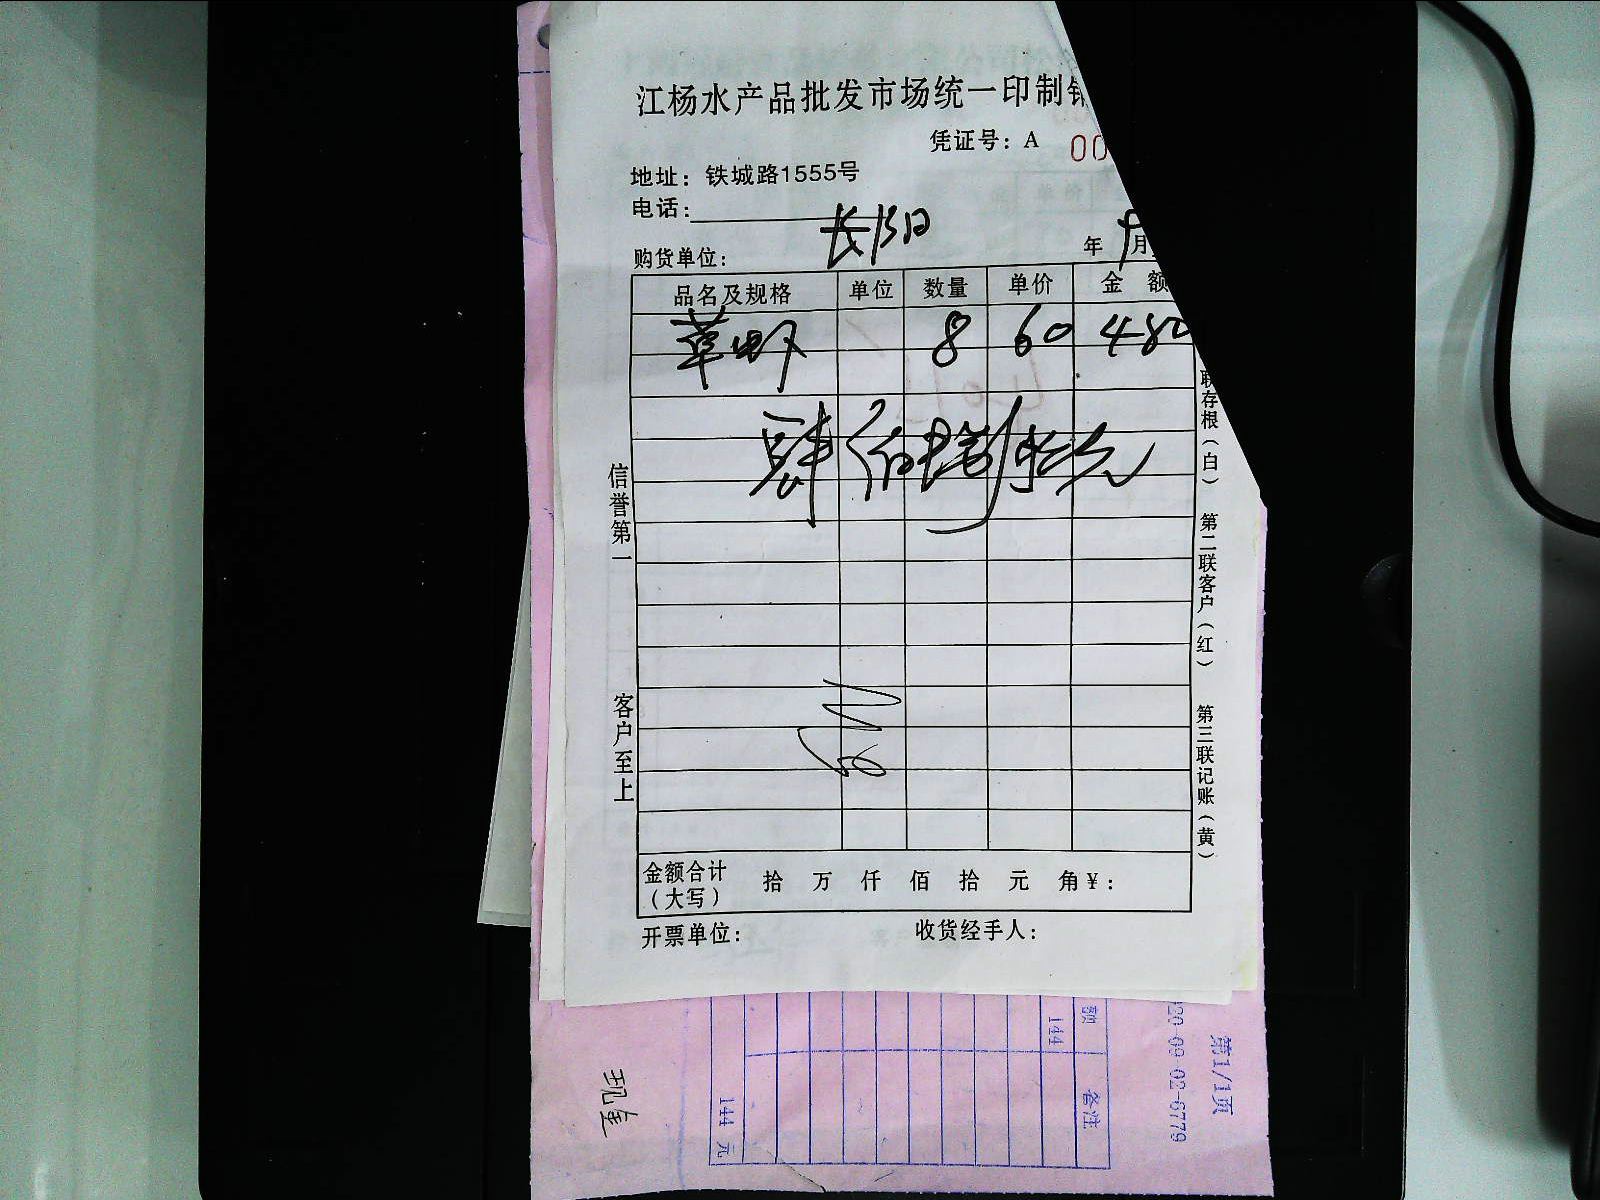 江杨水产品批发市场统一印制
凭证号：A 00
地址：铁城路1555号
电话：
购货单位： 年 9月
品名及规格 单位 数量 单价 金 额
草虾 8 60 480
肆佰捌拾元
信誉第一
客户至上
联存根（白）
第二联客户（红）
第三联记账（黄）
金额合计（大写） 拾 万 仟 佰 拾 元 角￥：
开票单位： 收货经手人：
额 备注
144
144 元
20-09-02-6779
第1/1页
现金